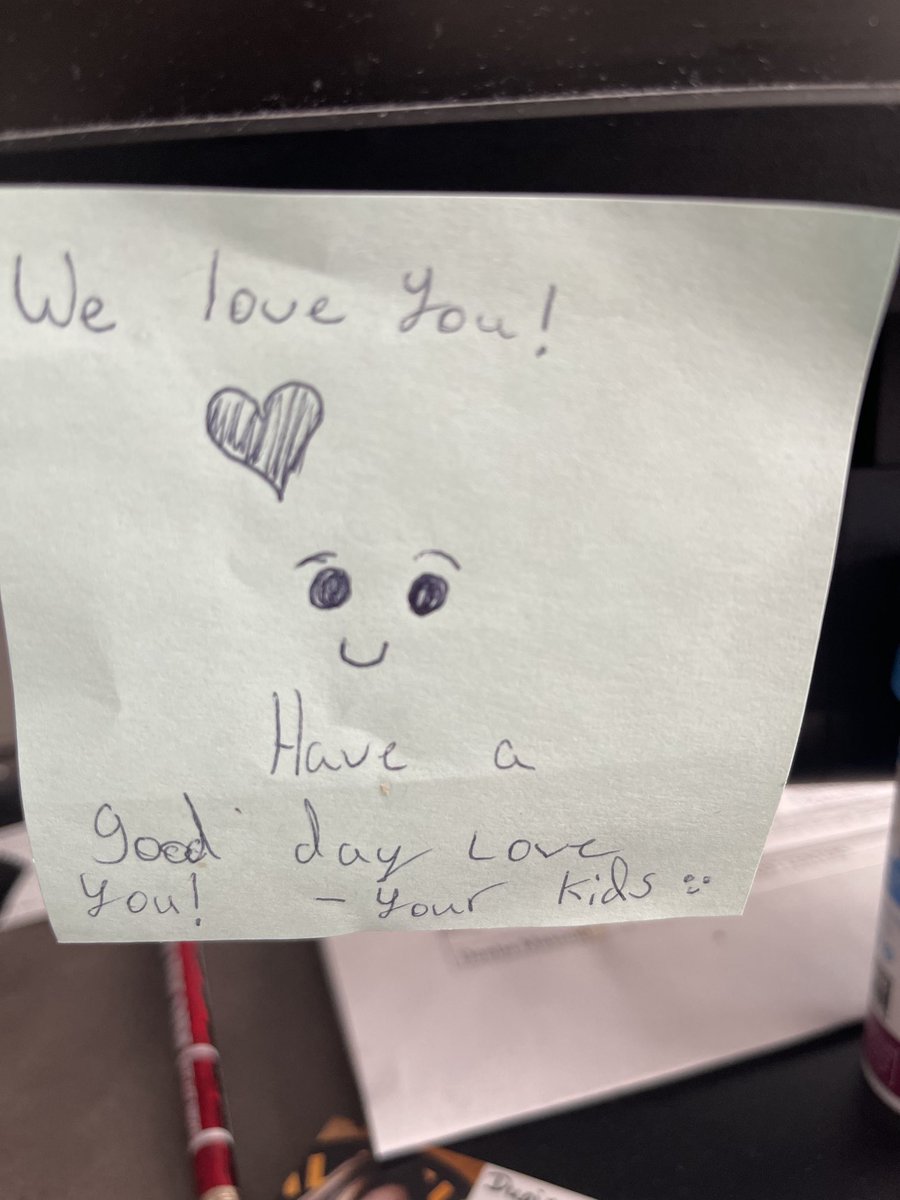 We love You!
Have a
good day Love
You! - Your kids :)